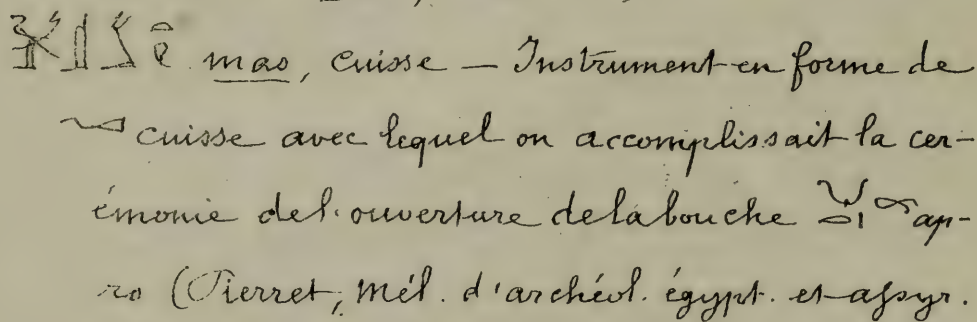 mas, cuisse — Instrument en forme de
cuisse avec lequel on accomplissait la cer-
émonie de l'ouverture de la bouche ap-
ro (Pierret, Mél. d'archéol. égypt. et assyr.